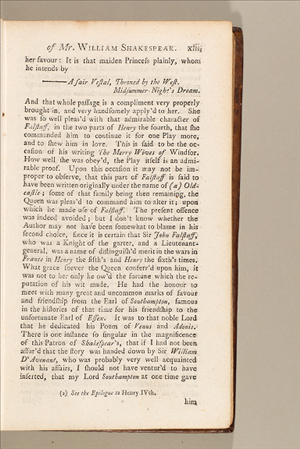 of Mr. WILLIAM SHAKESPEAR. xiii
her favour: It is that maiden Princess plainly, whom
he intends by
——A fair Vestal, Throned by the West.
Midsummer-Night's Dream.
And that whole passage is a compliment very properly
brought in, and very handsomely apply'd to her. She
was so well pleas'd with that admirable character of
Falstaff, in the two parts of Henry the fourth, that she
commanded him to continue it for one Play more,
and to shew him in love. This is said to be the oc-
casion of his writing The Merry Wives of Windsor.
How well she was obey'd, the Play itself is an admi-
rable proof. Upon this occasion it may not be im-
proper to observe, that this part of Falstaff is said to
have been written originally under the name of (a) Old-
castle; some of that family being then remaining, the
Queen was pleas'd to command him to alter it; upon
which he made use of Falstaff. The present offence
was indeed avoided; but I don't know whether the
Author may not have been somewhat to blame in his
second choice, since it is certain that Sir John Falstaff,
who was a Knight of the garter, and a Lieutenant-
general, was a name of distinguish'd merit in the wars in
France in Henry the fifth's and Henry the sixth's times.
What grace soever the Queen conferr'd upon him, it
was not to her only he ow'd the fortune which the re-
putation of his wit made. He had the honour to
meet with many great and uncommon marks of favour
and friendship from the Earl of Southampton, famous
in the histories of that time for his friendship to the
unfortunate Earl of Essex. It was to that noble Lord
that he dedicated his Poem of Venus and Adonis.
There is one instance so singular in the magnificence
of this Patron of Shakespear's, that if I had not been
assur'd that the story was handed down by Sir William
D'Avenant, who was probably very well acquainted
with his affairs, I should not have ventur'd to have
inserted, that my Lord Southampton at one time gave
(a) See the Epilogue to Henry IVth.
him